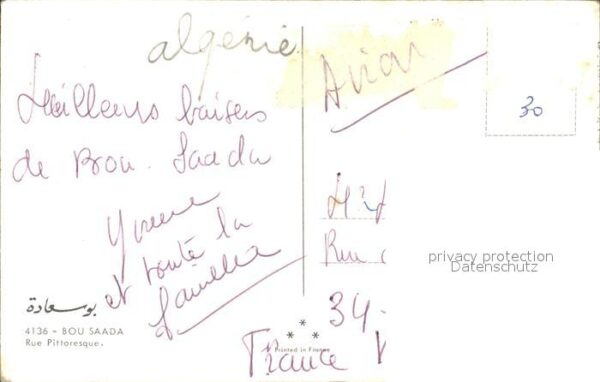 algérie
Avion
30
Meilleurs baisers
de Bou-Saada
Yvonne
et toute la
famille
Rue
34
France
privacy protection
Datenschutz
بوسعادة
4136 - BOU SAADA
Rue Pittoresque.
Printed in France